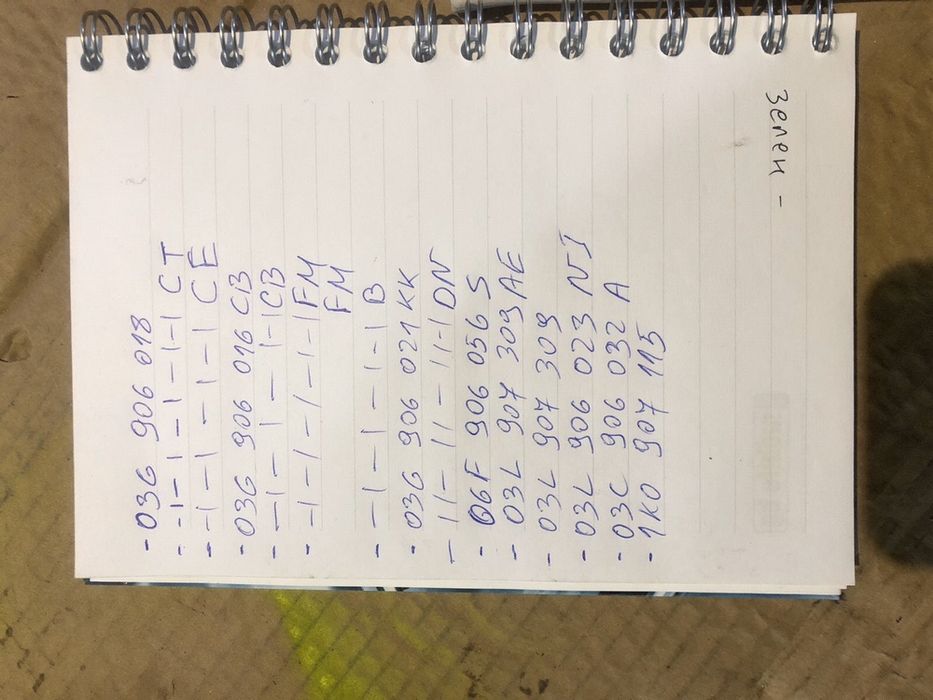 - 03G 906 018
- -1- 1 - 1-1 CT
- -1-1 - 1-1 CE
- 03G 906 016 CB
- -1- 1 - 1-1 CB
- -1-1-1-1-1 FM
FM
- -1-1-1-1 B
- 03G 906 021 KK
- 11- 11 - 11-1 DN
- 06F 906 056 S
- 03L 907 309 AE
- 03L 907 309
- 03L 906 023 NI
- 03C 906 032 A
- 1K0 907 115
зелен -